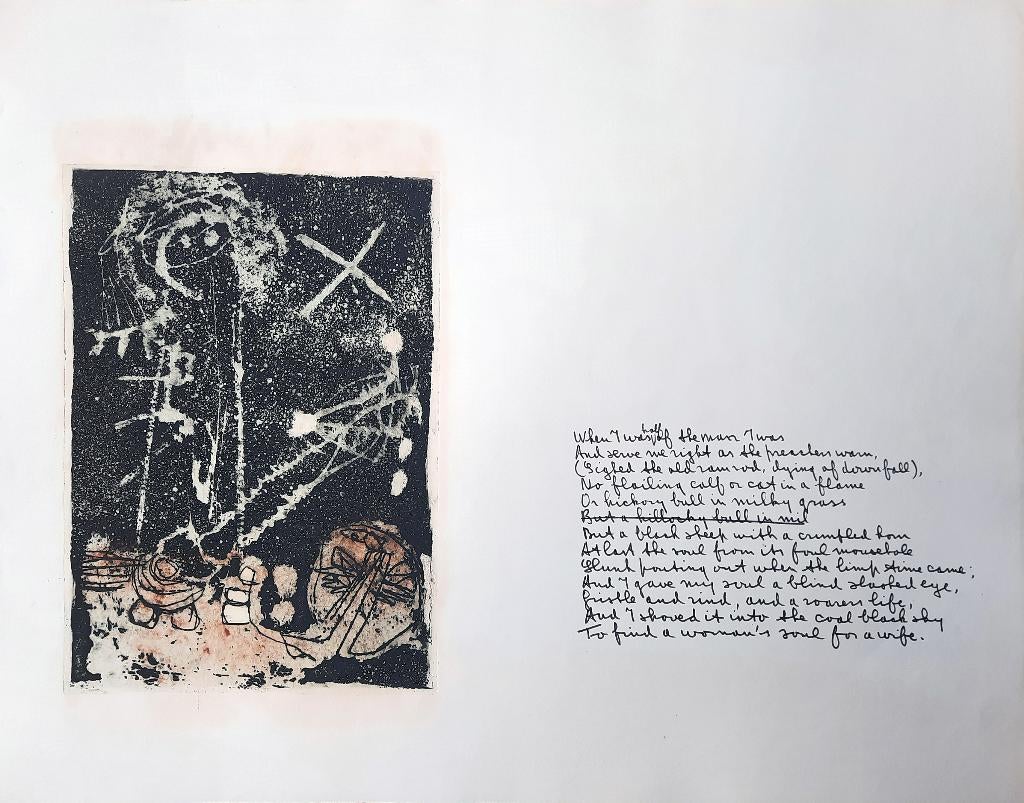 When I was half of the man I was
And serve me right as the preachers warn,
(Sighed the old ram rod, dying of downfall),
No flailing calf or cat in a flame
Or hickory bull in milky grass
But a hillocky bull in mi
But a black sheep with a crumpled horn
At last the soul from its foul mousehole
Slunk pouting out when the limp time came;
And I gave my soul a blind slashed eye,
Gristle and rind, and a roarers life,
And I shoved it into the coal black sky
To find a woman's soul for a wife.